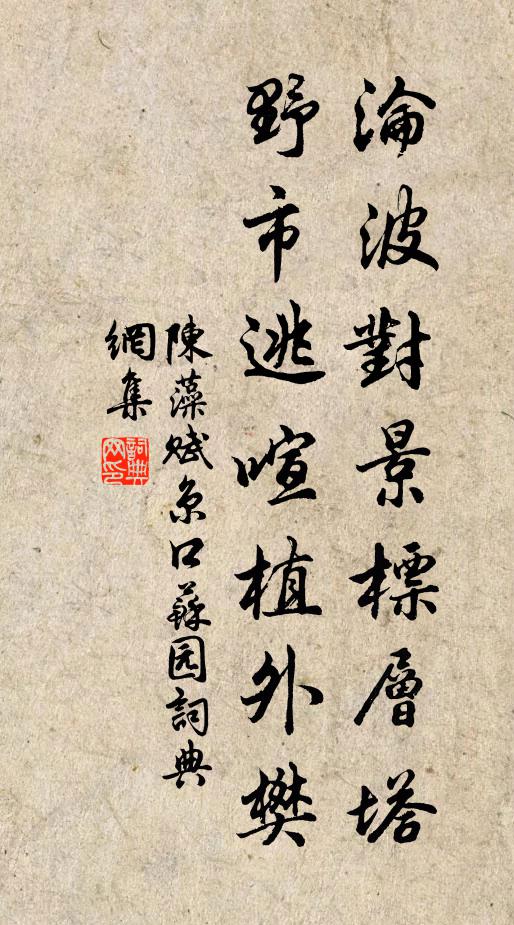 淪波對景標層塔
野市逃喧植外樊
陳藻賦京口蘇园詞典
網集
詞典網印